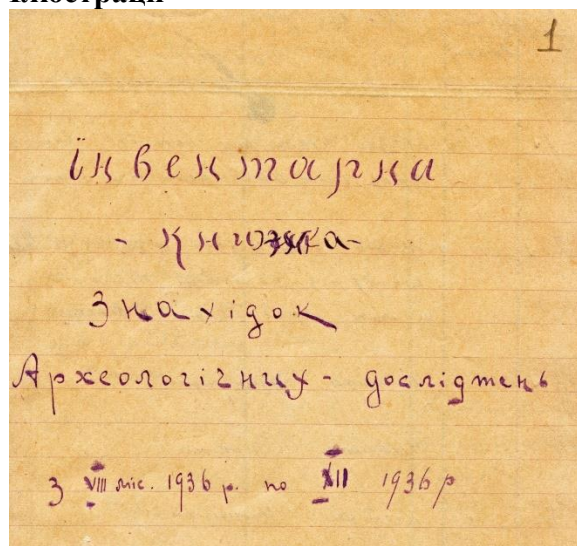 Ілюстрації
1
їнвентарна
- книжка-
знахідок
Археологічних - досліджень
з VIII міс. 1936 р. по XII 1936 р